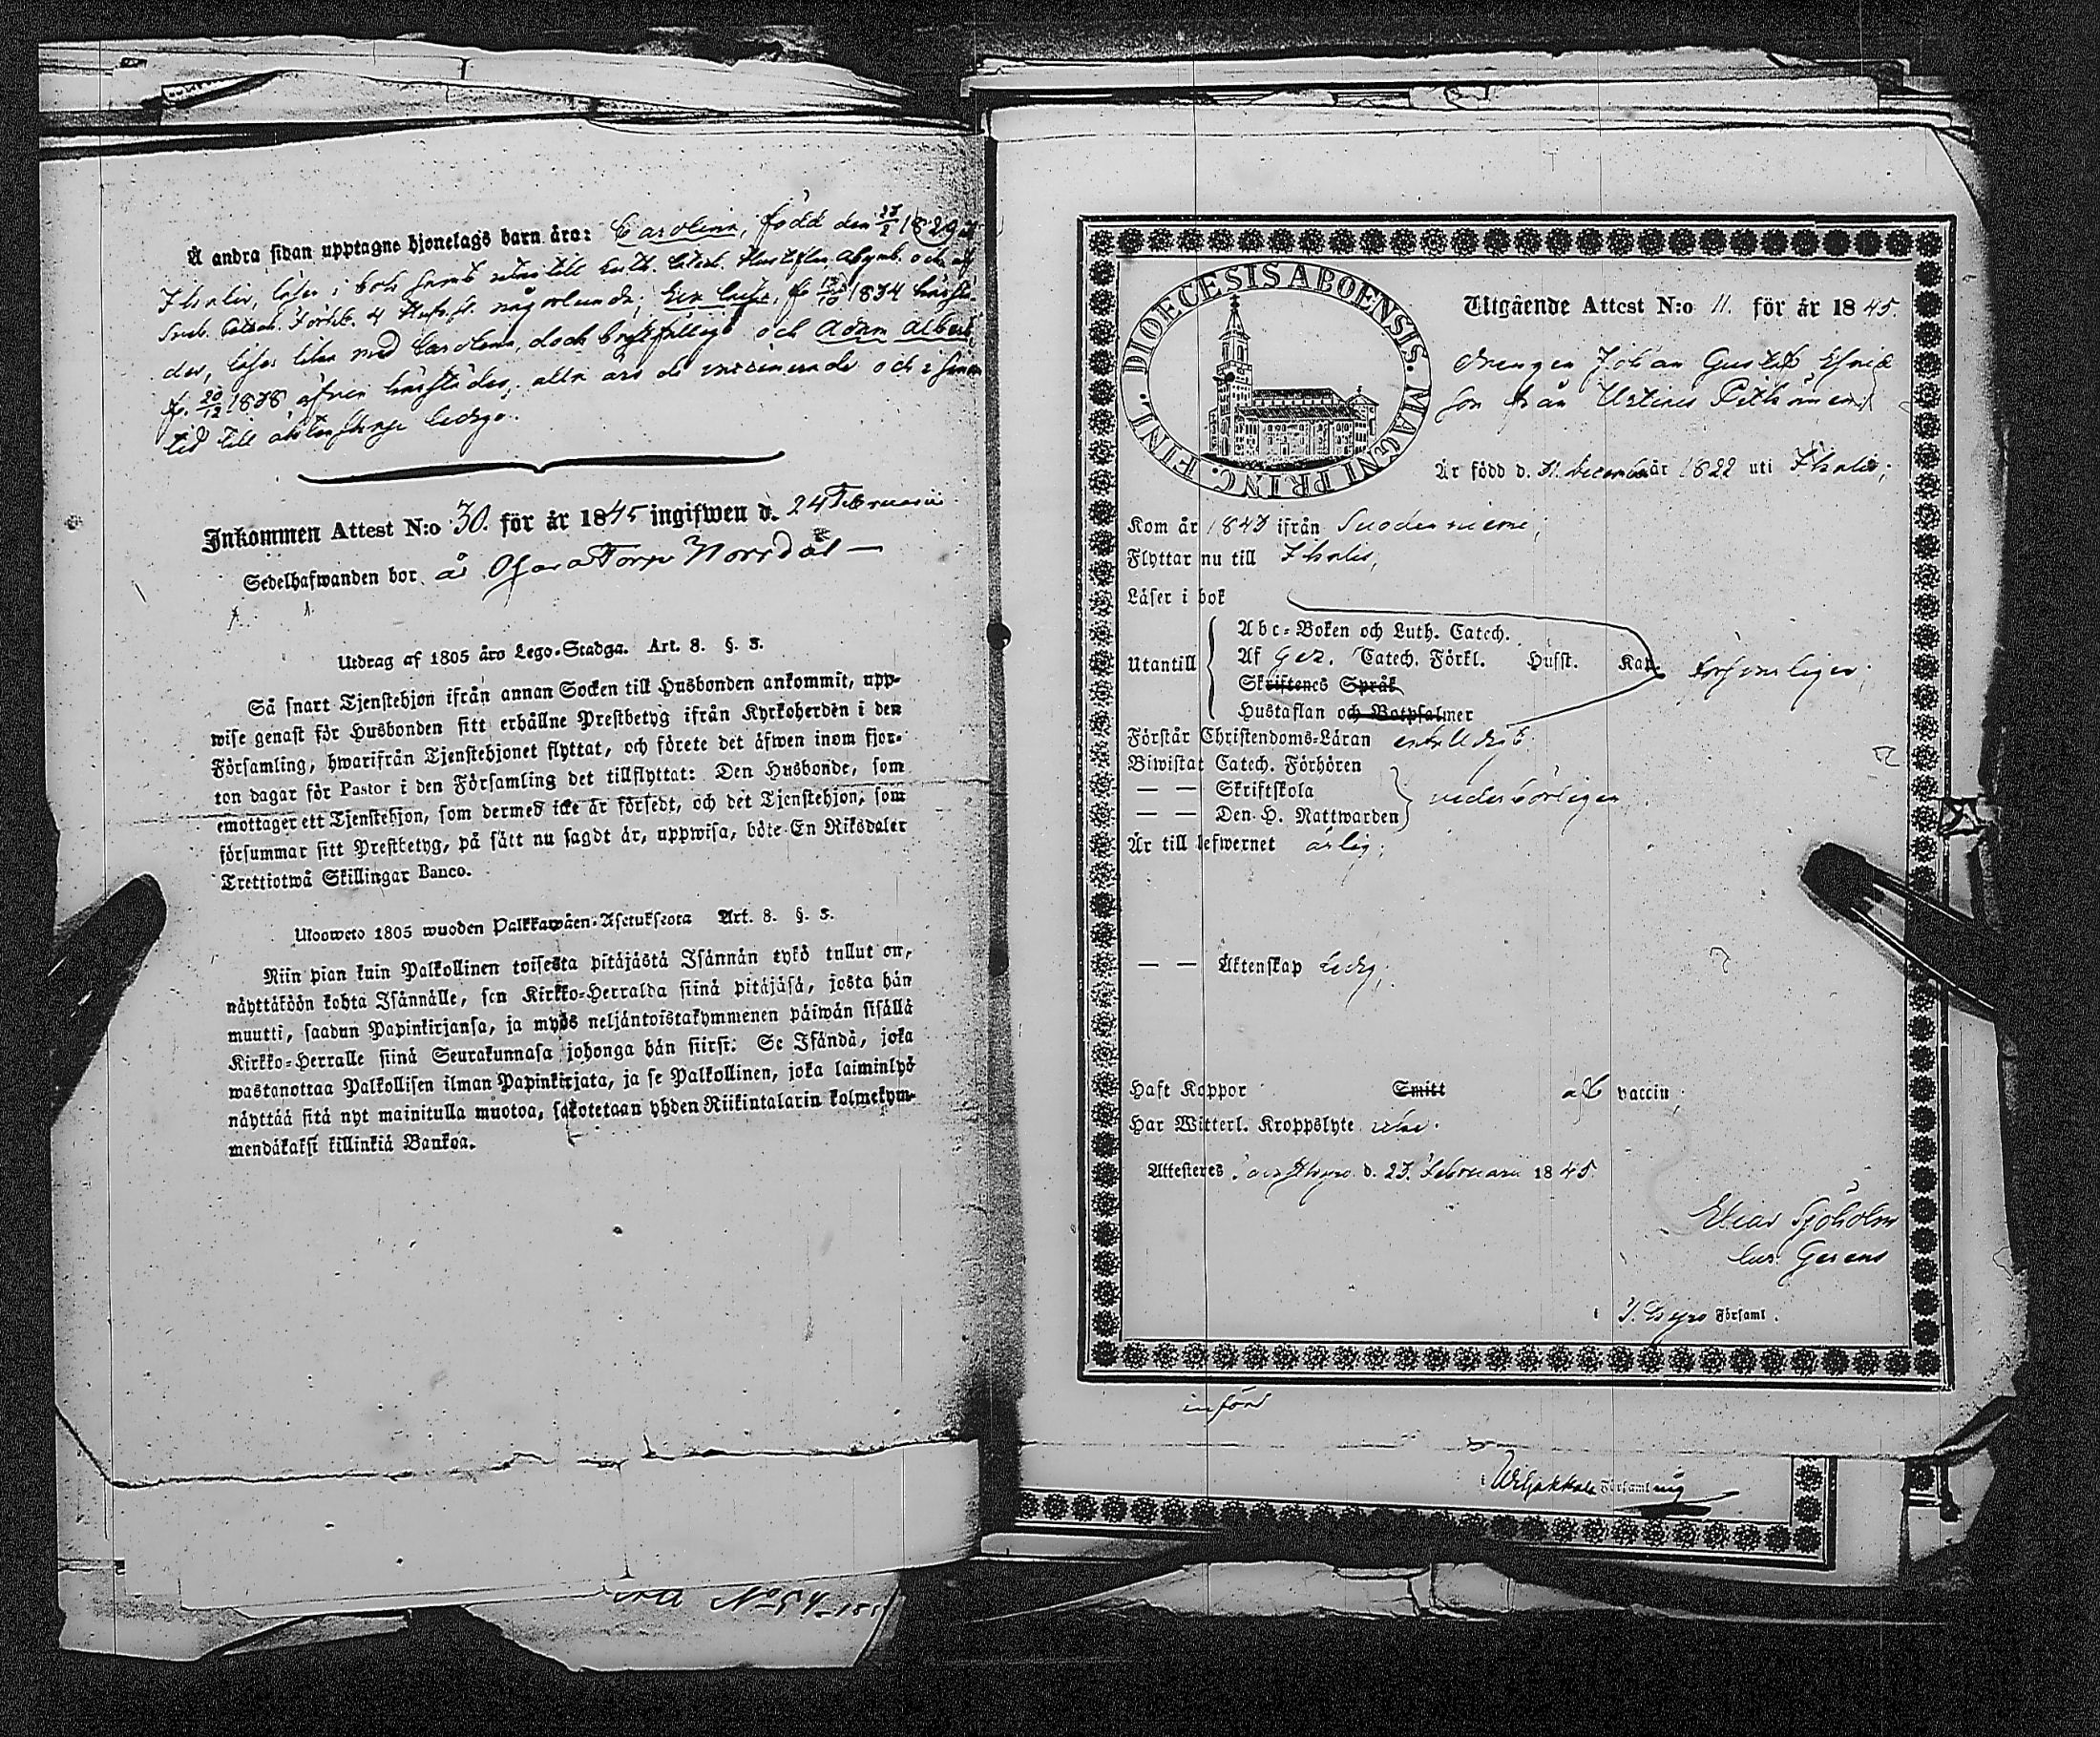 Å andra sidan upptagne hjonelags barn äro: Carolina, född den 27/2 1829 i
Ikalis, läser i bok samt utantill Luth. Catech. Hustaflan, Abcmb. och af
Sveb. Catech. Förkl. 4 Hufv.st. någorlunda; Eva Lovisa, f. 1834 härstä-
des, läser lika med Carolina, dock bristfälligt och Adam Albert,
fö. 20/12 1838, äfven härstädes; alla äro de vaccinerade och i sinom
tid till äktenskap lediga.
Inkommen Attest N:o 30. för år 1845 ingifwen d. 24 Februarii
Sedelhafwanden bor å Torp Norrdal —
Utdrag af 1805 års Lego-Stadga. Art. 8. §. 3.
Så snart Tjenstehjon ifrån annan Socken till Husbonden ankommit, upp-
wise genast för Husbonden sitt erhållne Prestbetyg ifrån Kyrkoherden i den
Församling, hwarifrån Tjenstehjonet flyttat, och förete det äfwen inom fjor-
ton dagar för Pastor i den Församling det tillflyttat: Den Husbonde, som
emottager ett Tjenstehjon, som dermed icke är försedt, och det Tjenstehjon, som
försummar sitt Prestbetyg, på sätt nu sagdt är, uppwisa, böte En Riksdaler
Trettiotwå Skillingar Banco.
Ulosweto 1805 wuoden Palkkawäen-Asetuksesta Art. 8. §. 3.
Niin pian kuin Palkollinen toisesta pitäjästä Isännän tykö tullut on,
näyttäköön kohta Isännälle, sen Kirkko-Herralda siinä pitäjäsä, josta hän
muutti, saadun Papinkirjansa, ja myös neljäntoistakymmenen päiwän sisällä
Kirkko-Herralle siinä Seurakunnasa johonga hän siirsi: Se Isändä, joka
wastanottaa Palkollisen ilman Papinkirjata, ja se Palkollinen, joka laiminlyö
näyttää sitä nyt mainitulla muotoa, sakotetaan yhden Riikintalarin kolmekym-
mendäkaksi killinkiä Bankoa.
N:o 54 - 185
DIOECESIS ABOENSIS. MAGNI PRINC. FINL.
Utgående Attest N:o 11. för år 1845.
Drengen Johan Gustaf Esaias
son från
Är född d. 31 december år 1822 uti Ikalis;
Kom år 1843 ifrån Suodenniemi;
Flyttar nu till Ikalis,
Läser i bok
Utantill
Abc-Boken och Luth. Catech.
Af Gez. Catech. Förkl. Husst. Kat. försvarligen;
Skriftenes Språk
Hustaflan och Botpsalmer
Förstår Christendoms-Läran enfalldigt;
Biwistat Catech. Förhören
— — Skriftskola
— — Den H. Nattwarden vederbörligen
Är till lefwernet ärlig;
— — Äktenskap ledig;
Haft Koppor Smitt af vaccin;
Har Witterl. Kroppslyte utan.
Attesteres d. 23. Februarii 1845.
Elias Sjöholm
Cur. Gerens
i Församl.
införd
i Wiljakkala Församling